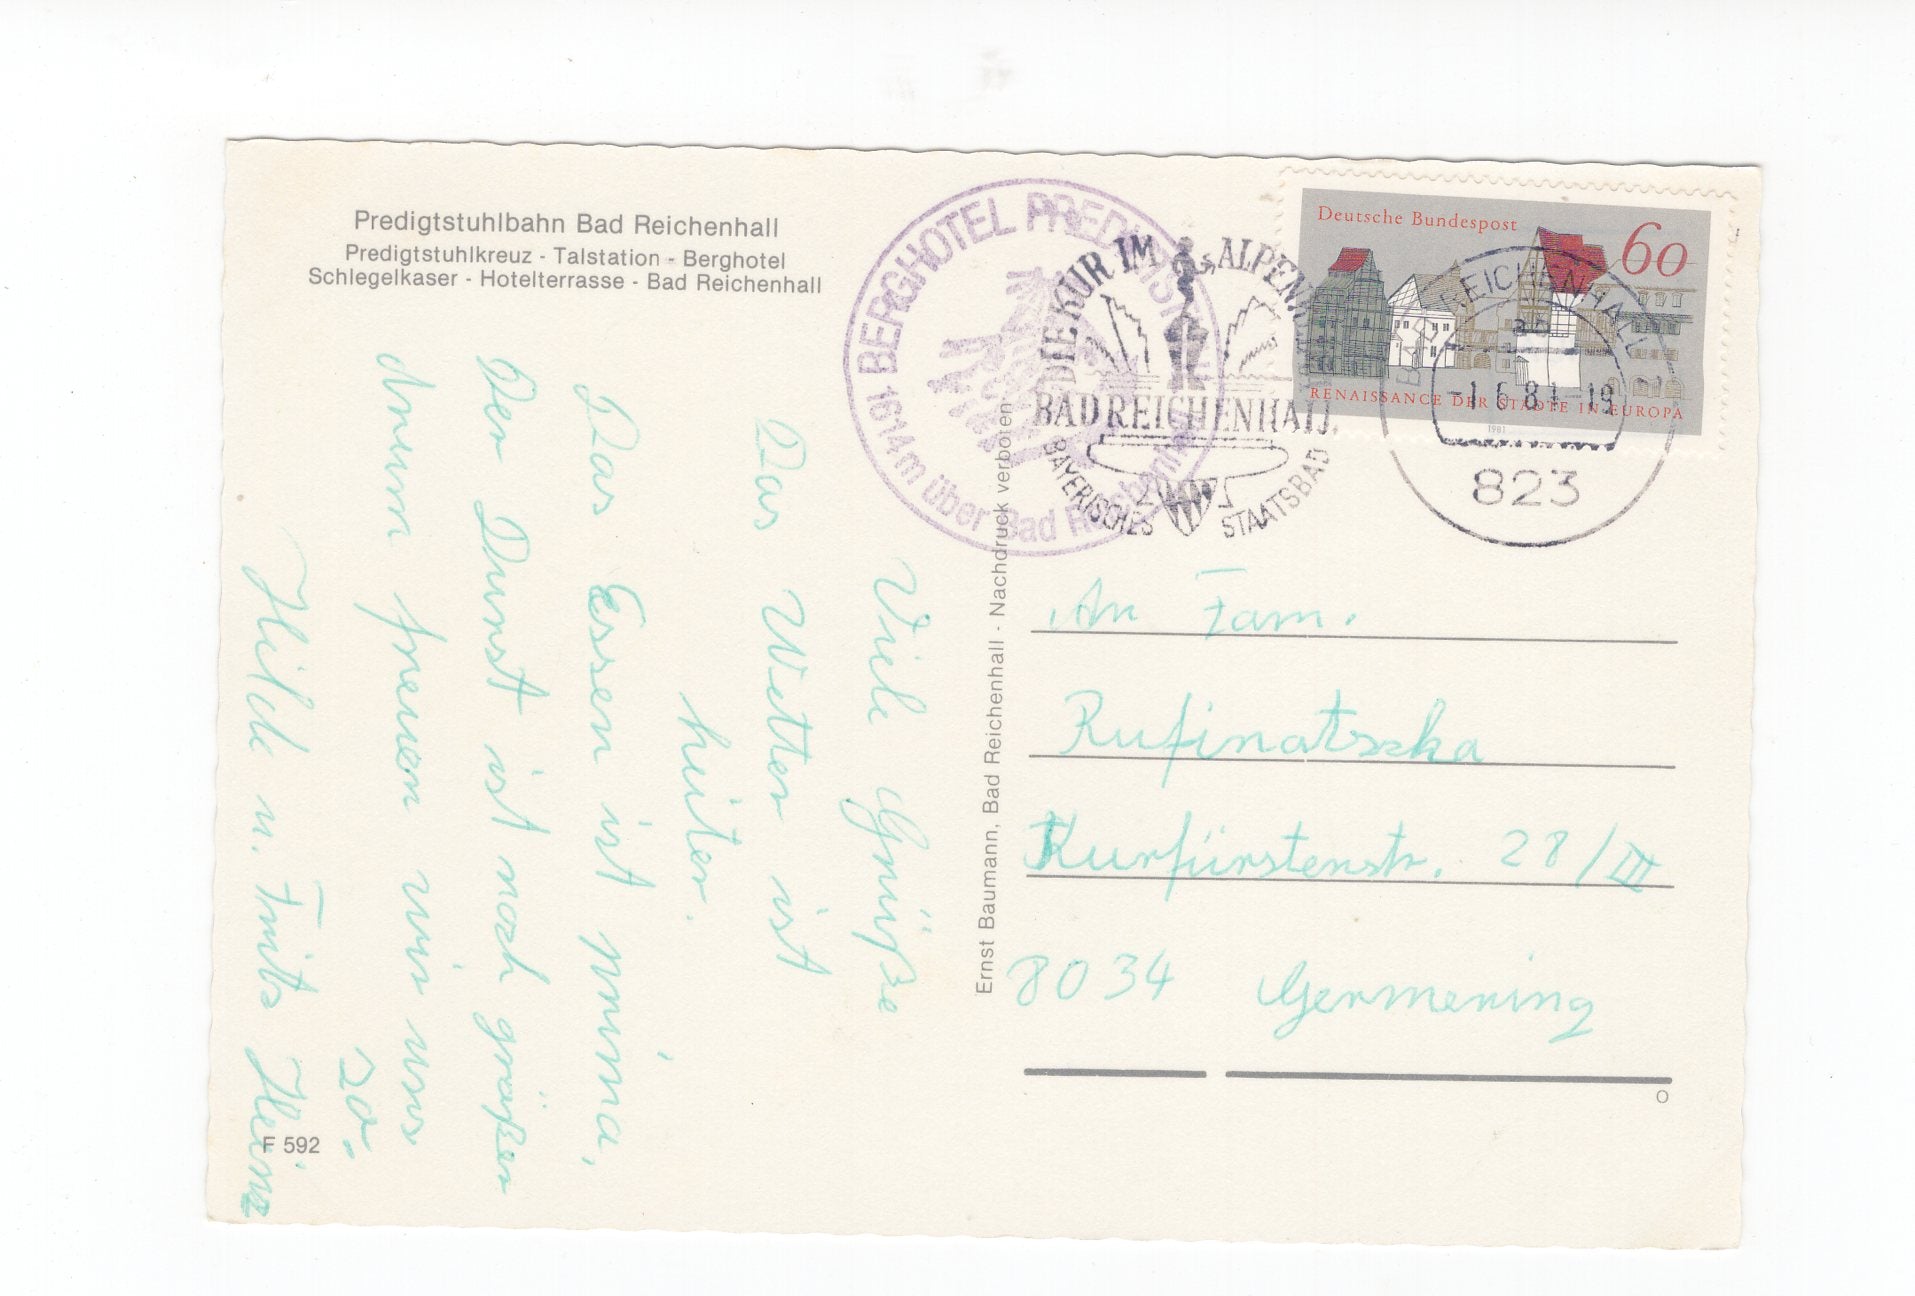 Predigtstuhlbahn Bad Reichenhall
Predigtstuhlkreuz - Talstation - Berghotel
Schlegelkaser - Hotelterrasse - Bad Reichenhall
BERGHOTEL PREDIGTSTUHL
1614m über Bad Reichenhall
DIE KUR IM ALPEN
BAD REICHENHALL
BAYERISCHES STAATSBAD
Deutsche Bundespost
60
RENAISSANCE DER STÄDTE IN EUROPA
1981
BAD REICHENHALL
-1.6.81-19
823
Viele Grüße
Das Wetter ist
heiter.
Das Essen ist prima,
Der Durst ist noch größer
drum freuen wir uns
so.
Hilde u. Fritz Heinz
Ernst Baumann, Bad Reichenhall - Nachdruck verboten
An Fam.
Rufinatscha
Kurfürstenstr. 28/III
8034 Germering
F 592